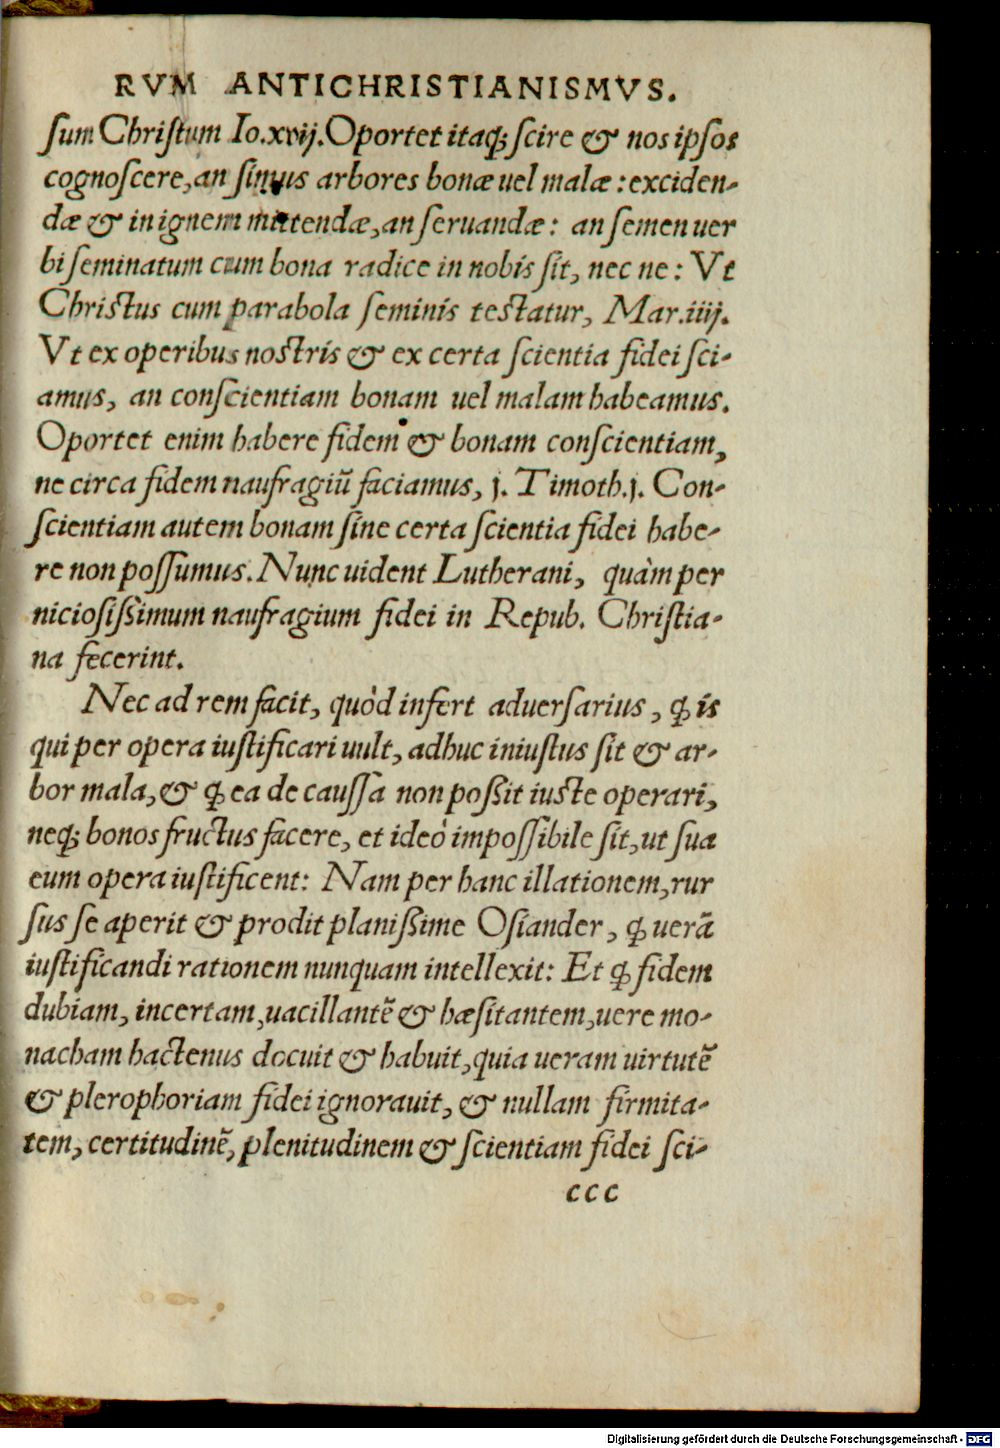 RVM ANTICHRISTIANISMVS.
sum Christum Io.xvij. Oportet itaq; scire & nos ipsos
cognoscere, an simus arbores bonæ uel malæ: exciden-
dæ & in ignem mittendæ, an seruandæ: an semen uer
bi seminatum cum bona radice in nobis sit, nec ne: Vt
Christus cum parabola seminis testatur, Mar.iiij.
Vt ex operibus nostris & ex certa scientia fidei sci-
amus, an conscientiam bonam uel malam habeamus.
Oportet enim habere fidem & bonam conscientiam,
ne circa fidem naufragiũ faciamus, j. Timoth.j. Con-
scientiam autem bonam sine certa scientia fidei habe-
re non possumus. Nunc uident Lutherani, quàm per
niciosißimum naufragium fidei in Repub. Christia-
na fecerint.
Nec ad rem facit, quòd infert aduersarius, ꝙ is
qui per opera iustificari uult, adhuc iniustus sit & ar-
bor mala, & ꝙ ea de caussa non poßit iuste operari,
neq; bonos fructus facere, et ideò impossibile sit, ut sua
eum opera iustificent: Nam per hanc illationem, rur
sus se aperit & prodit planißime Osiander, ꝙ uerã
iustificandi rationem nunquam intellexit: Et ꝙ fidem
dubiam, incertam, uacillantẽ & hæsitantem, uere mo-
nacham hactenus docuit & habuit, quia ueram uirtutẽ
& plerophoriam fidei ignorauit, & nullam firmita-
tem, certitudinẽ, plenitudinem & scientiam fidei sci-
ccc
Digitalisierung gefördert durch die Deutsche Forschungsgemeinschaft - DFG